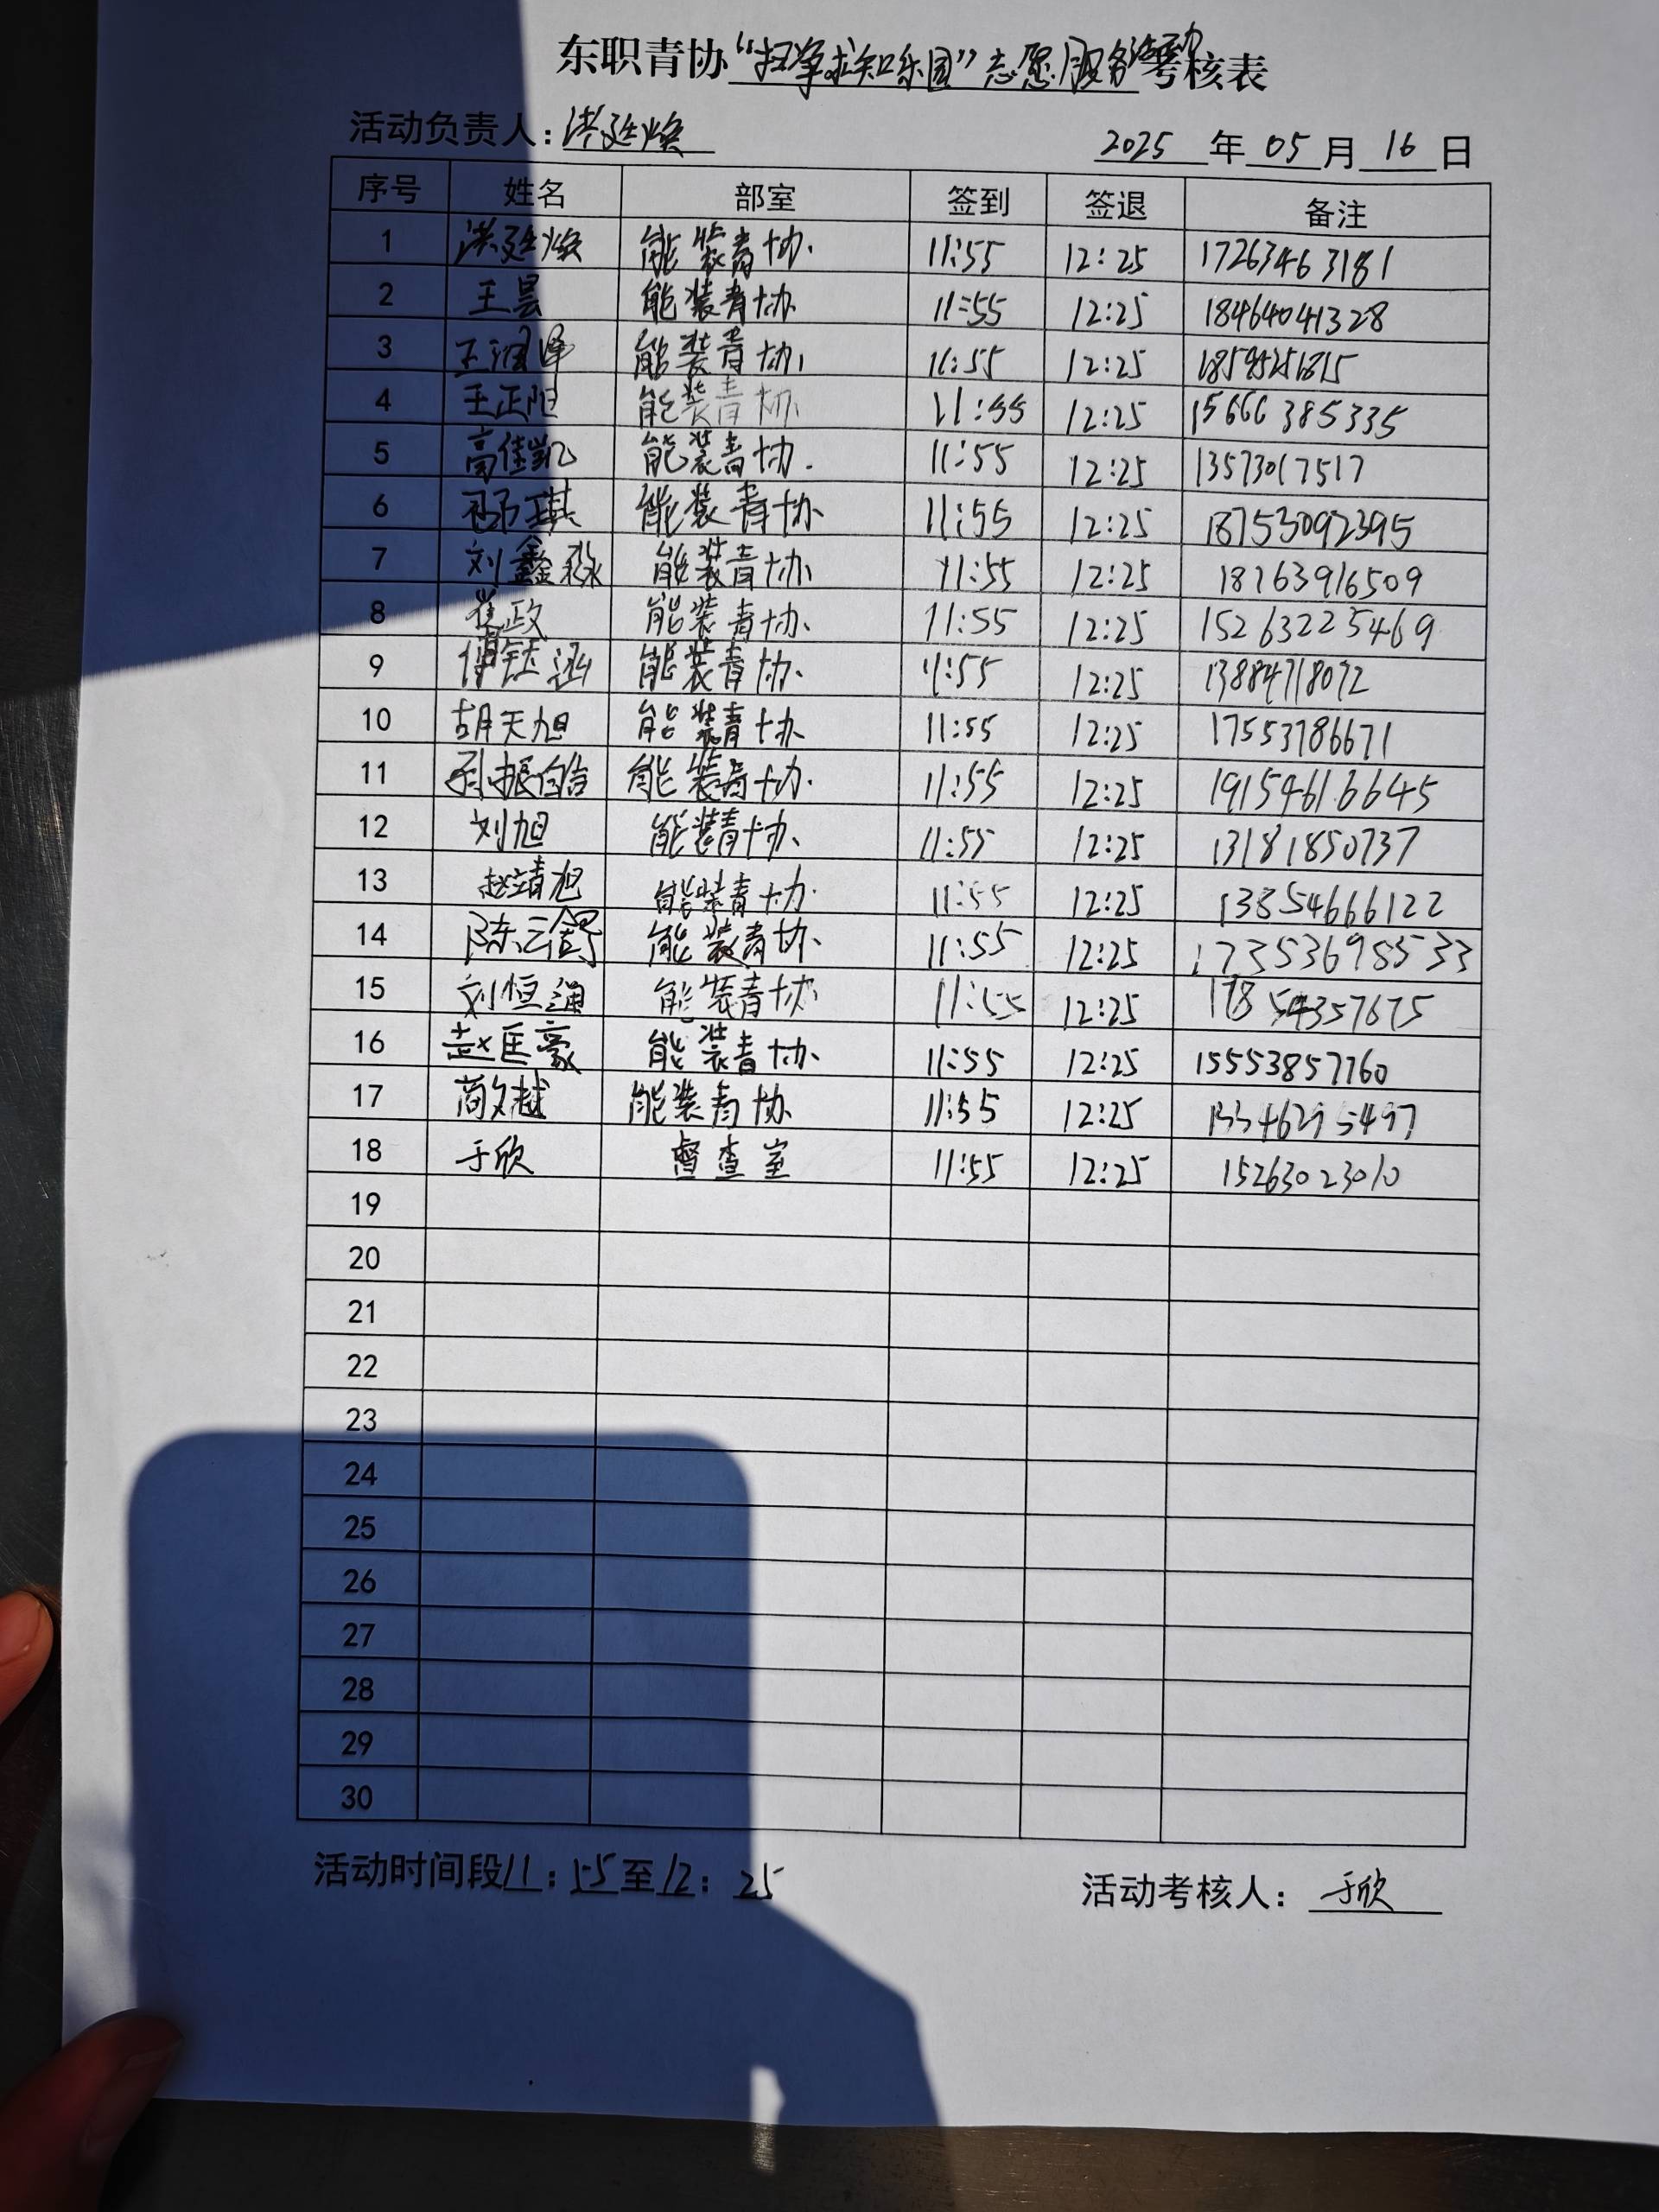 东职青协“扫净求知乐园”志愿服务活动考核表
活动负责人：洪延焕 2025 年 05 月 16 日
序号 姓名 部室 签到 签退 备注
1 洪延焕 能装青协 11:55 12:25 17263463181
2 王昙 能装青协 11:55 12:25 18464041328
3 能装青协 11:55 12:25
4 王正阳 能装青协 11:55 12:25 15666385335
5 高佳凯 能装青协 11:55 12:25 13573017517
6 邵琪 能装青协 11:55 12:25 18753092395
7 刘鑫淼 能装青协 11:55 12:25 18763916509
8 崔政 能装青协 11:55 12:25 15263225469
9 傅钰涵 能装青协 11:55 12:25 13884718072
10 胡天旭 能装青协 11:55 12:25 17553786671
11 孙振皓 能装青协 11:55 12:25 19154616645
12 刘旭 能装青协 11:55 12:25 13181850737
13 赵靖旭 能装青协 11:55 12:25 13854666122
14 能装青协 11:55 12:25
15 刘恒通 能装青协 11:55 12:25 17854357675
16 赵匡豪 能装青协 11:55 12:25 15553857760
17 商文越 能装青协 11:55 12:25 13346295497
18 于欣 督查室 11:55 12:25 15263023010
19
20
21
22
23
24
25
26
27
28
29
30
活动时间段11：55至12：25 活动考核人：于欣